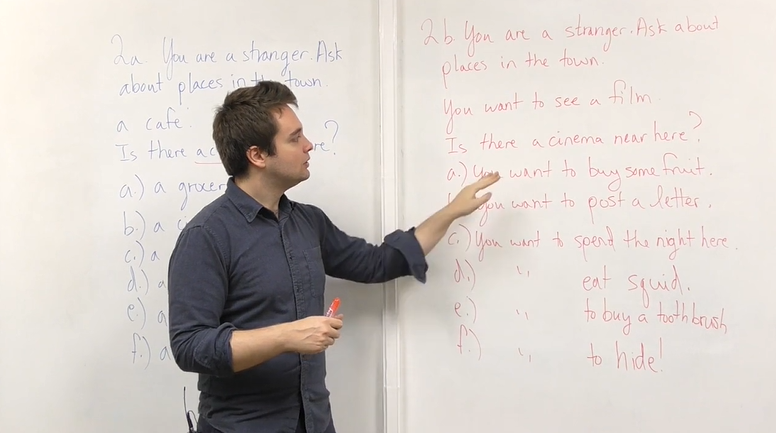 2a You are a stranger. Ask
about places in the town.
a cafe
Is there a re?
a.) a grocer
b.) a
c.) a
d.) a
e.) a
f.) a
2b You are a stranger. Ask about
places in the town.
You want to see a film.
Is there a cinema near here?
a.) You want to buy some fruit.
You want to post a letter.
c.) You want to spend the night here.
d.) " eat squid.
e.) " to buy a toothbrush
f.) " to hide!